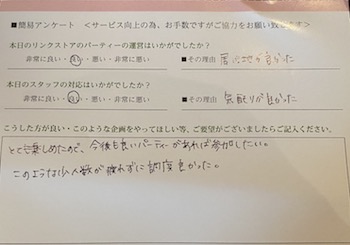 ■簡易アンケート ＜サービス向上の為、お手数ですがご協力をお願い致します＞
本日のリンクストアのパーティーの運営はいかがでしたか？
非常に良い・良い・悪い・非常に悪い ■その理由 居心地が良かった
本日のスタッフの対応はいかがでしたか？
非常に良い・良い・悪い・非常に悪い ■その理由 気配りが良かった
こうした方が良い・このような企画をやってほしい等、ご要望がございましたらご記入ください。
とても楽しめたので、今後も良いパーティーがあれば参加したい。
このような少人数が疲れずに調度良かった。